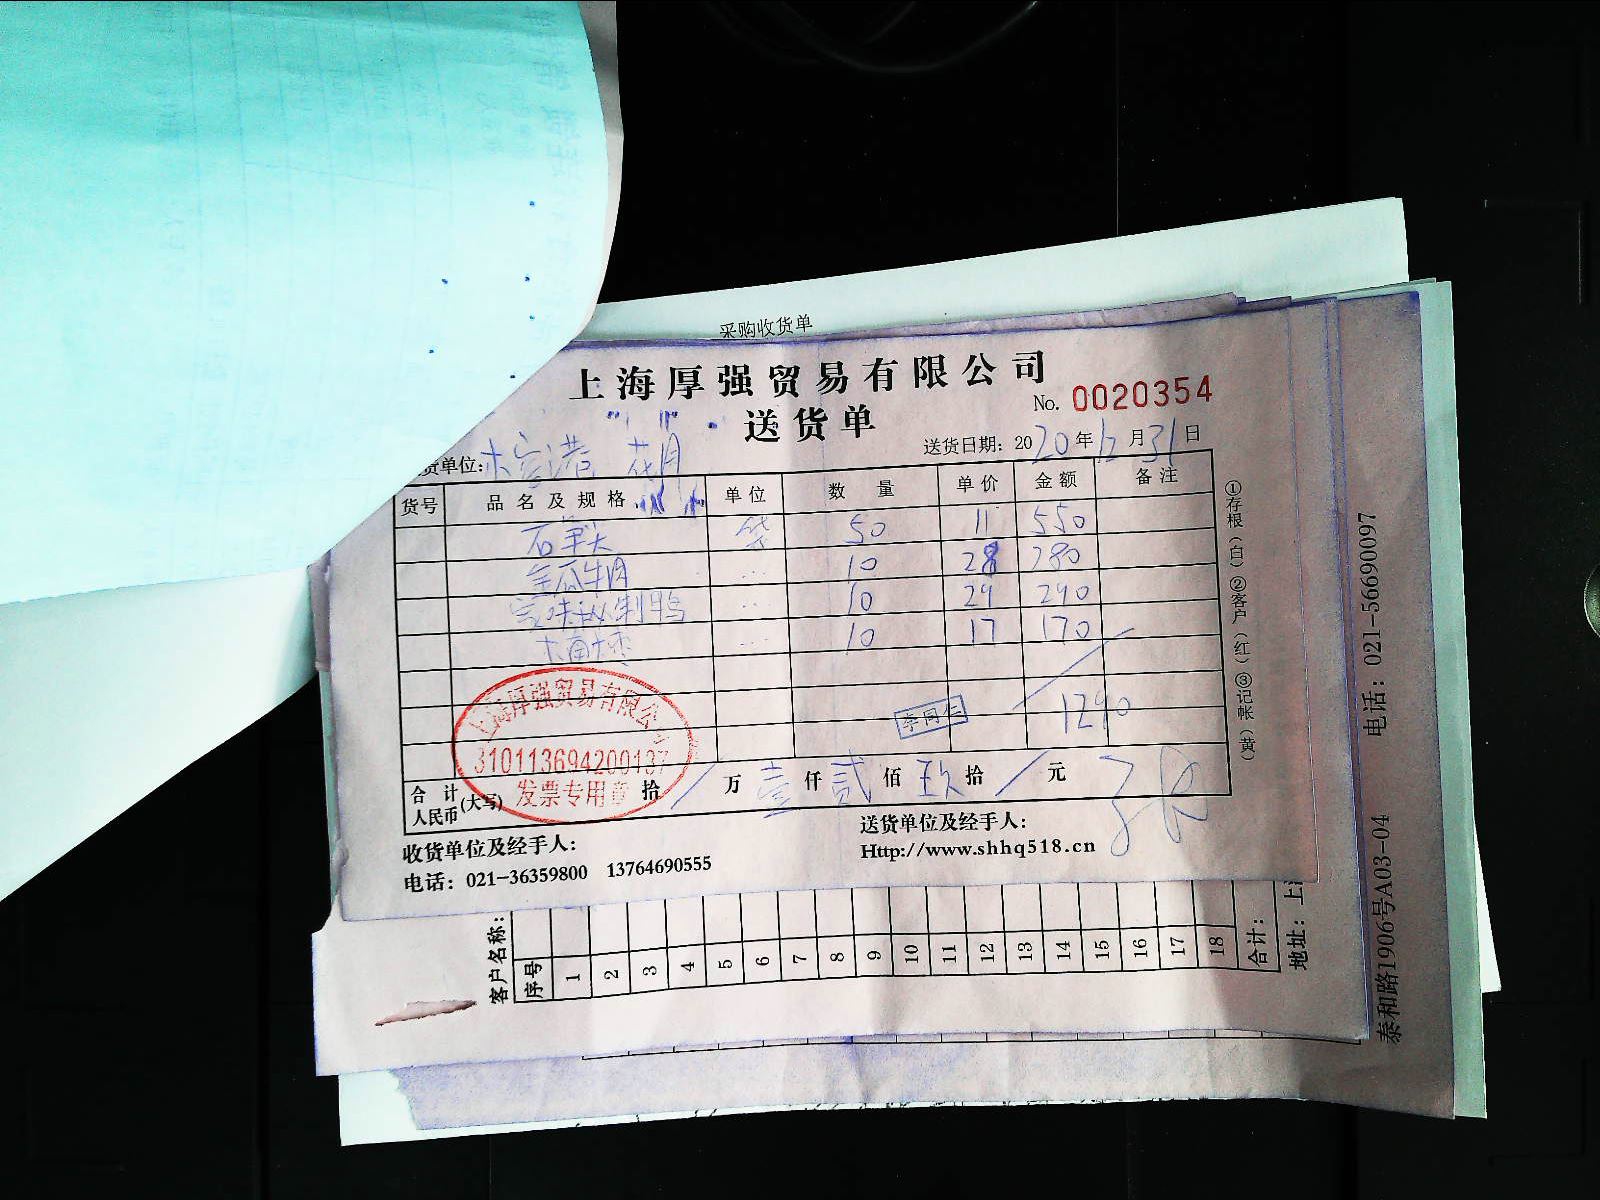 采购收货单
上海厚强贸易有限公司
No. 0020354
送货单
送货日期: 2020年12月31日
货单位:
货号 品名及规格 单位 数量 单价 金额 备注
袋 50 11 550
10 28 280
10 29 290
10 17 170
李同仁
1290
上海厚强贸易有限公司
310113694200137
发票专用章
合计人民币(大写) 拾 / 万 壹 仟 贰 佰 玖 拾 / 元
收货单位及经手人:
送货单位及经手人:
电话: 021-36359800 13764690555
Http://www.shhq518.cn
①存根(白)②客户(红)③记帐(黄)
客户名称:
序号 1 2 3 4 5 6 7 8 9 10 11 12 13 14 15 16 17 18 合计:
地址: 上
电话: 021-56690097
泰和路1906号A03-04